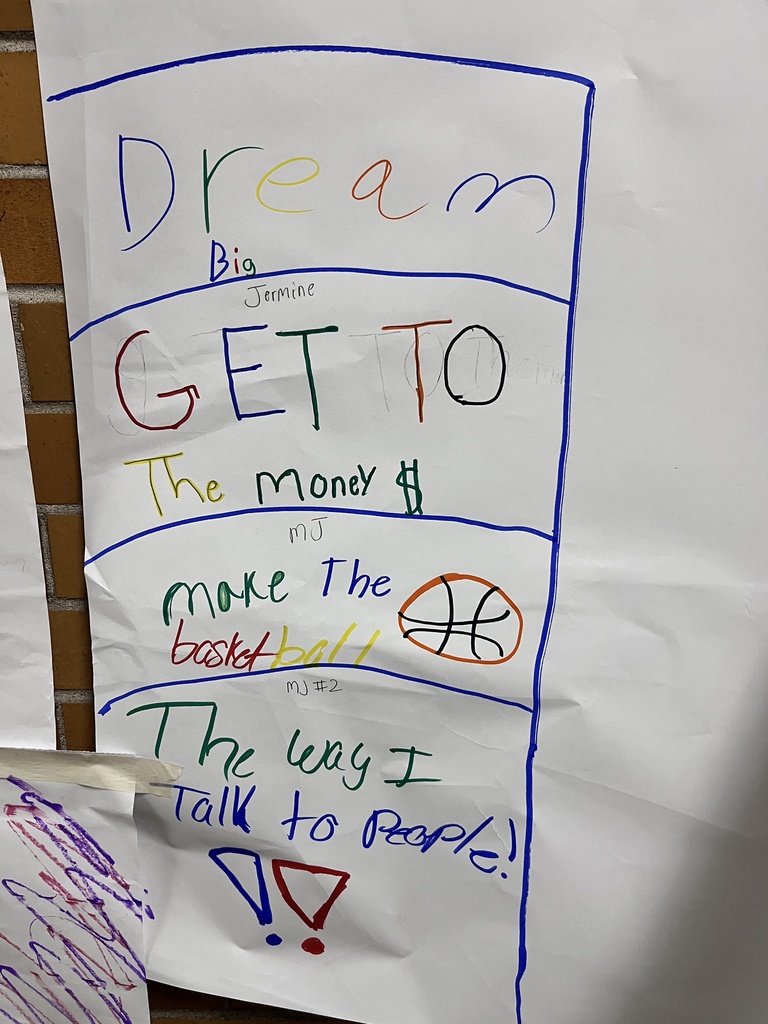 Dream
Big
Jermine
GET TO
The money $
MJ
make The
basketball
MJ #2
The way I
Talk to PEOPle!
!!